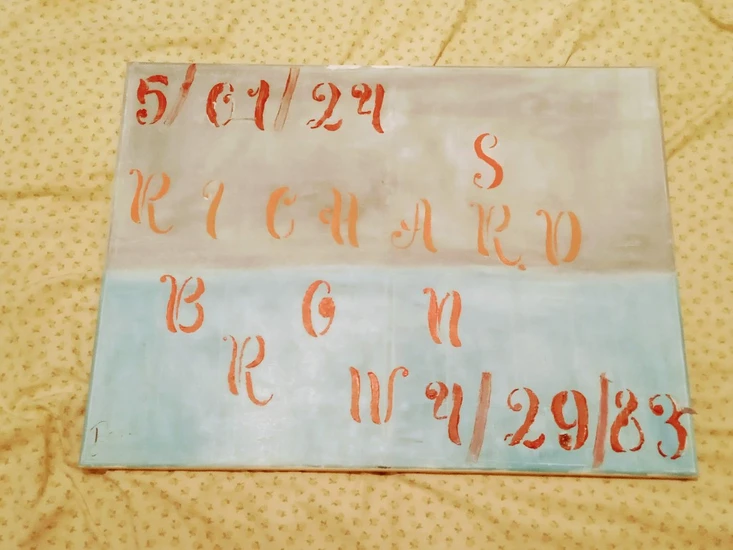 5/01/24
S
RICHARD
BROWN
4/29/83